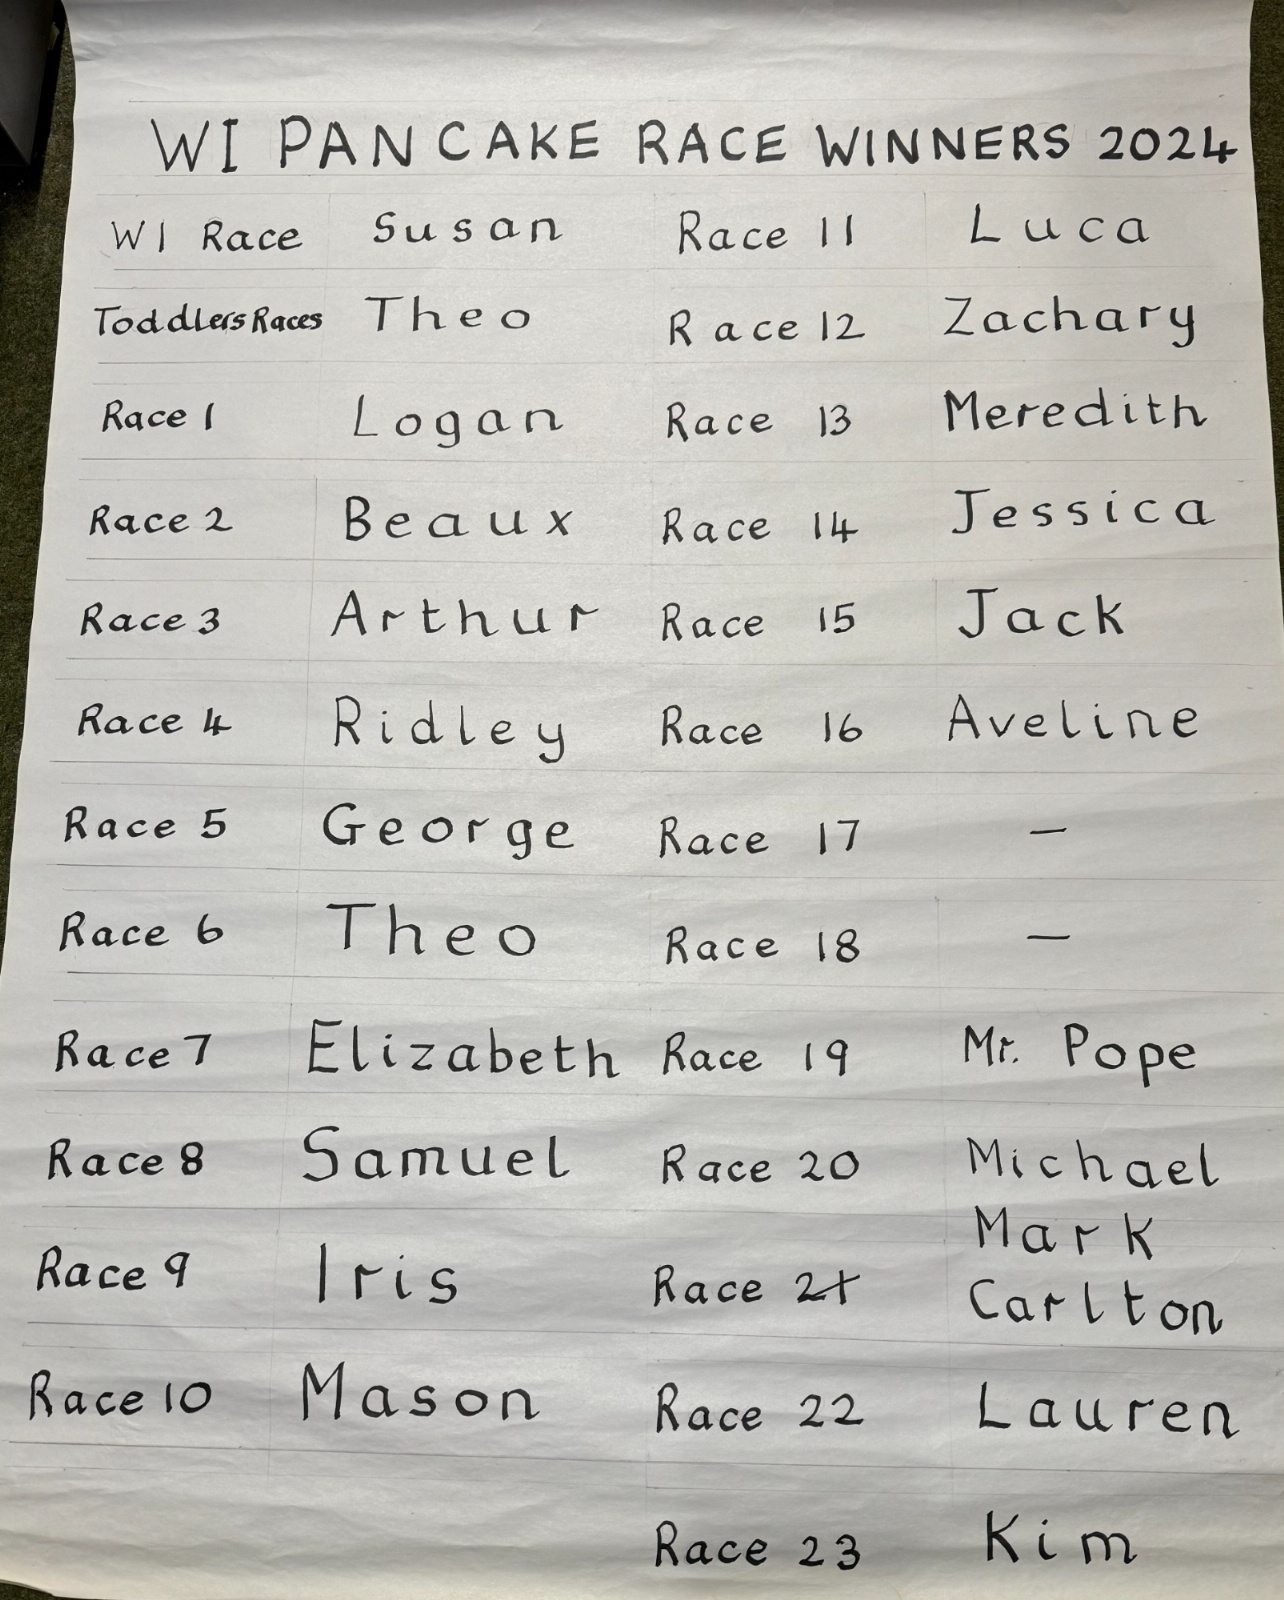 WI PANCAKE RACE WINNERS 2024
WI Race Susan
Toddlers Races Theo
Race 1 Logan
Race 2 Beaux
Race 3 Arthur
Race 4 Ridley
Race 5 George
Race 6 Theo
Race 7 Elizabeth
Race 8 Samuel
Race 9 Iris
Race 10 Mason
Race 11 Luca
Race 12 Zachary
Race 13 Meredith
Race 14 Jessica
Race 15 Jack
Race 16 Aveline
Race 17 —
Race 18 —
Race 19 Mr. Pope
Race 20 Michael
Mark
Race 21 Carlton
Race 22 Lauren
Race 23 Kim